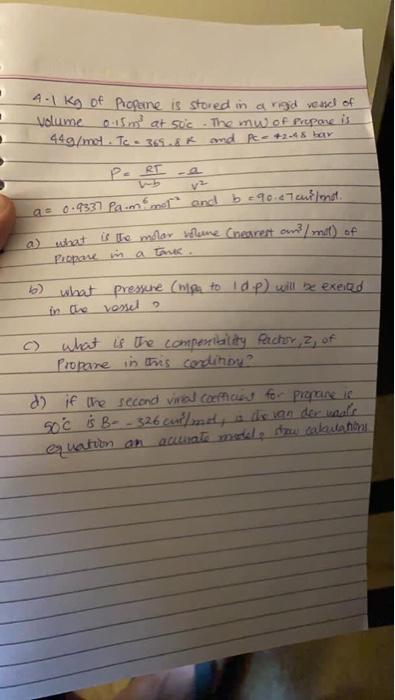 4.1 Kg of Propane is stored in a rigid vessel of
volume 0.15m³ at 50°c. The mw of Propane is
44g/mol. Tc = 369.8 K and Pc = 42.48 bar
P = RT/V-b - a/V²
a = 0.9337 Pa.m⁶ mol⁻² and b = 90.47 cm³/mol.
a) what is the molar volume (nearest cm³/mol) of
Propane in a tank.
b) what pressure (mpa to 1 d.p) will be exerted
in the vessel ?
c) what is the compersibility factor, Z, of
Propane in this condition?
d) if the second virial coefficient for propane is
50°c is B = -326 cm³/mol, is the van der waal's
equation an accurate model? show calculations